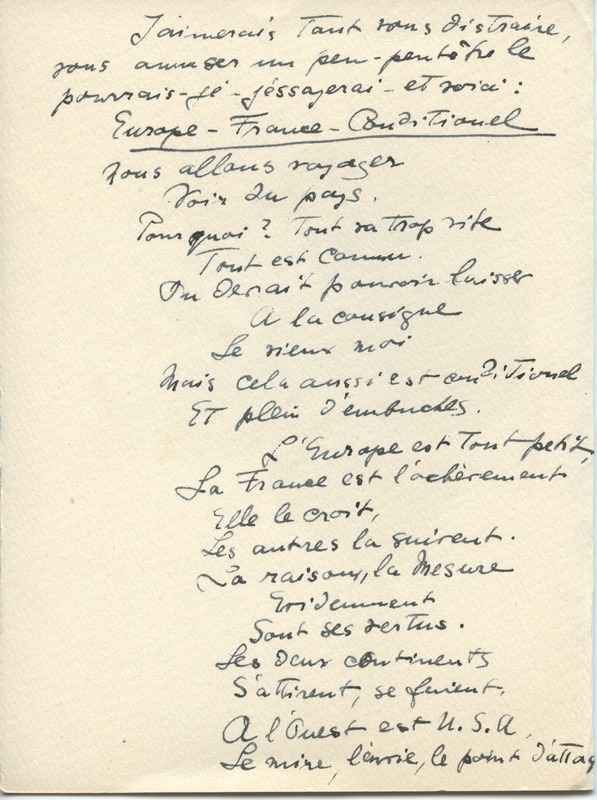 J'aimerais tant vous distraire,
vous amuser un peu - peutêtre le
pourrais-je - j'éssayerai - et voici :
Europe - France - Conditionel
Nous allons voyager
Voir du pays.
Pourquoi ? Tout va trop vite
Tout est connu.
On devait pouvoir laisser
A la consigne
Le vieux moi
Mais cela aussi est conditionel
Et plein d'embuches.
L'Europe est tout petit,
La France est l'achèvement
Elle le croit,
Les autres la suivent.
La raison, la Mesure
Evidemment
Sont ses vertus.
Les deux continents
S'attirent, se fuient.
A l'Ouest est U.S.A,
Le mire, l'envie, le point d'attaq